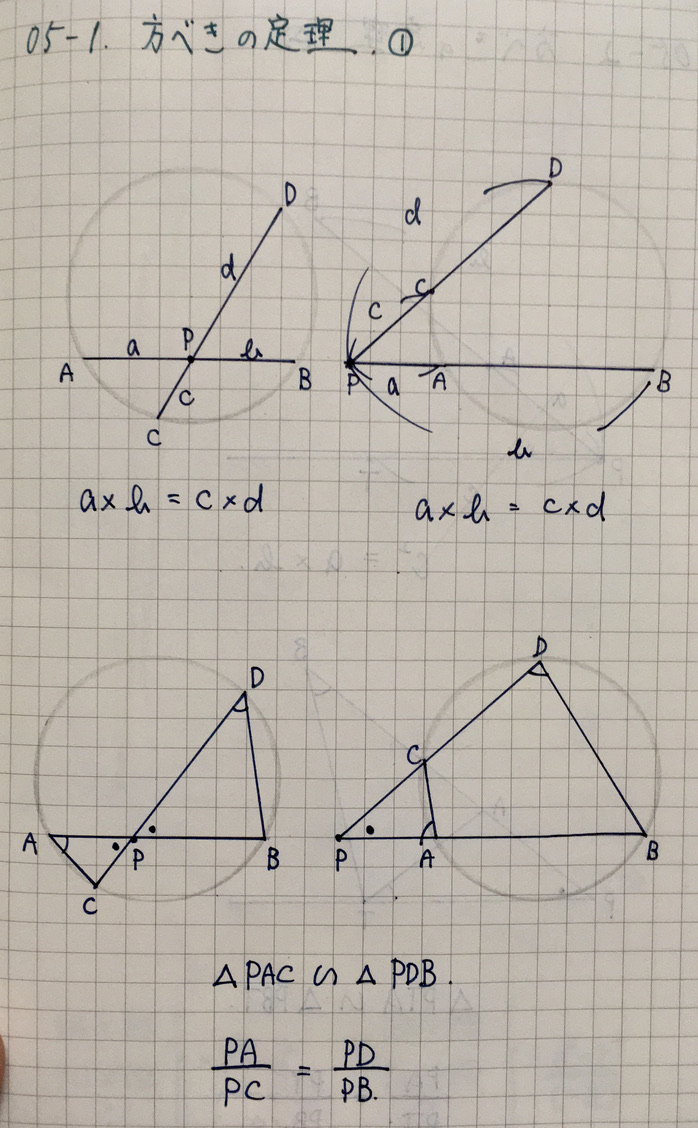 05-1. 方べきの定理. ①
D
d
P
a b
A B
c
C
D
d
C
c
P a A B
b
a×b = c×d
a×b = c×d
D
A P B
C
D
C
P A B
△PAC ∽ △PDB.
PA/PC = PD/PB.